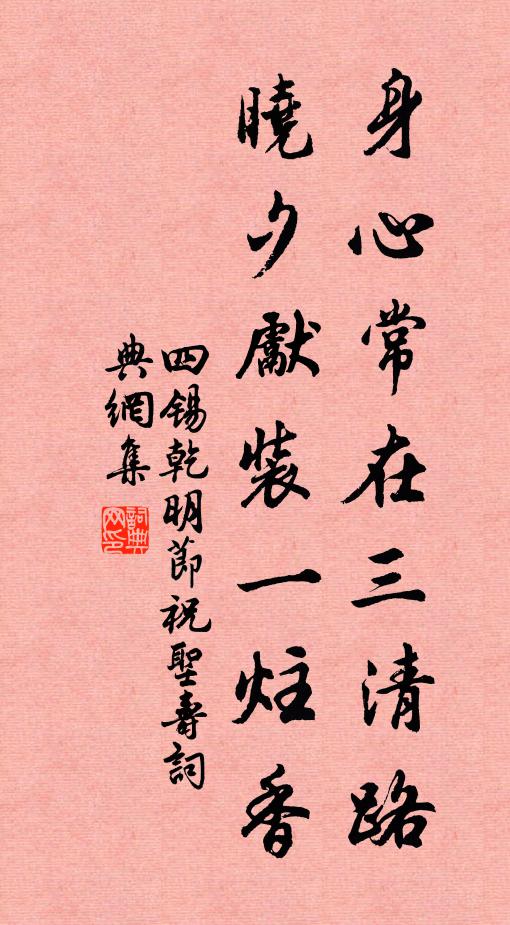 身心常在三清路
曉夕獻裝一炷香
四錫乾明節祝聖壽詞
典網集
詞典網印